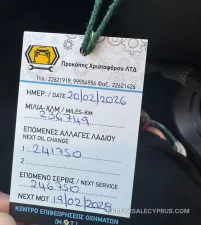 Προκόπης Χριστοφόρου ΛΤΔ
Τηλ.: 22621919, 99554956 Φαξ: 22621426
ΗΜΕΡ. / DATE 20/02/2026
ΜΙΛΙΑ-ΧΛΜ / MILES-KM
236749
ΕΠΟΜΕΝΕΣ ΑΛΛΑΓΕΣ ΛΑΔΙΟΥ
NEXT OIL CHANGE
1 241750
2
ΕΠΟΜΕΝΟ ΣΕΡΒΙΣ / NEXT SERVICE
246750
NEXT MOT 19/02/2028
ΚΕΝΤΡΟ ΕΠΙΘΕΩΡΗΣΕΩΣ ΟΧΗΜΑΤΩΝ
(Μ.Ο.Τ.)